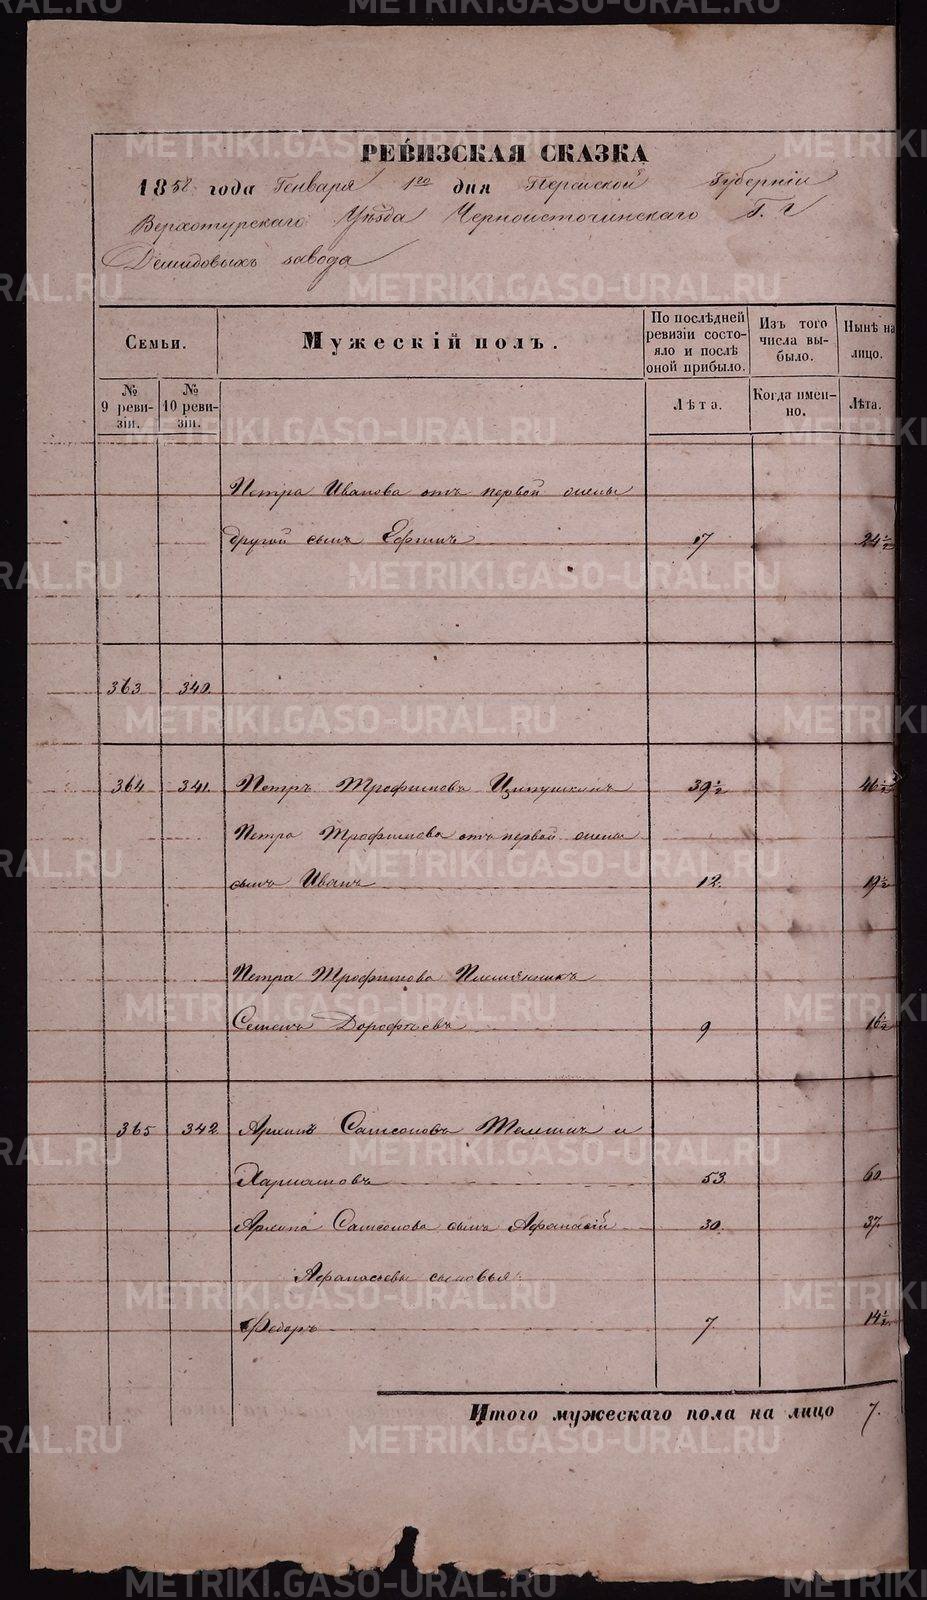 РЕВИЗСКАЯ СКАЗКА
1858 года Генваря 1го дня Пермской Губернии
Верхотурскаго Уѣзда Черноисточинскаго Г. г
Демидовыхъ завода
Семьи. Мужескій полъ. По послѣдней ревизіи состояло и послѣ оной прибыло. Изъ того числа выбыло. Нынѣ на лицо.
№ 9 ревизіи. № 10 ревизіи. Лѣта. Когда именно. Лѣта.
Петра Иванова отъ первой жены
другой сынъ Ефимъ 17 24½
363 340.
364 341. Петръ Трофимовъ Ципушкинъ 39½ 46½
Петра Трофимова отъ первой жены
сынъ Иванъ 12. 19½
Петра Трофимова Племянникъ
Семенъ Дорофѣевъ 9 16½
365 342 Архипъ Самсоновъ и
53. 60
Архипа Самсонова сынъ Афанасій 30. 37.
Афанасьевы сыновья
Федоръ 7. 14½
Итого мужескаго пола на лицо 7.
METRIKI.GASO-URAL.RU